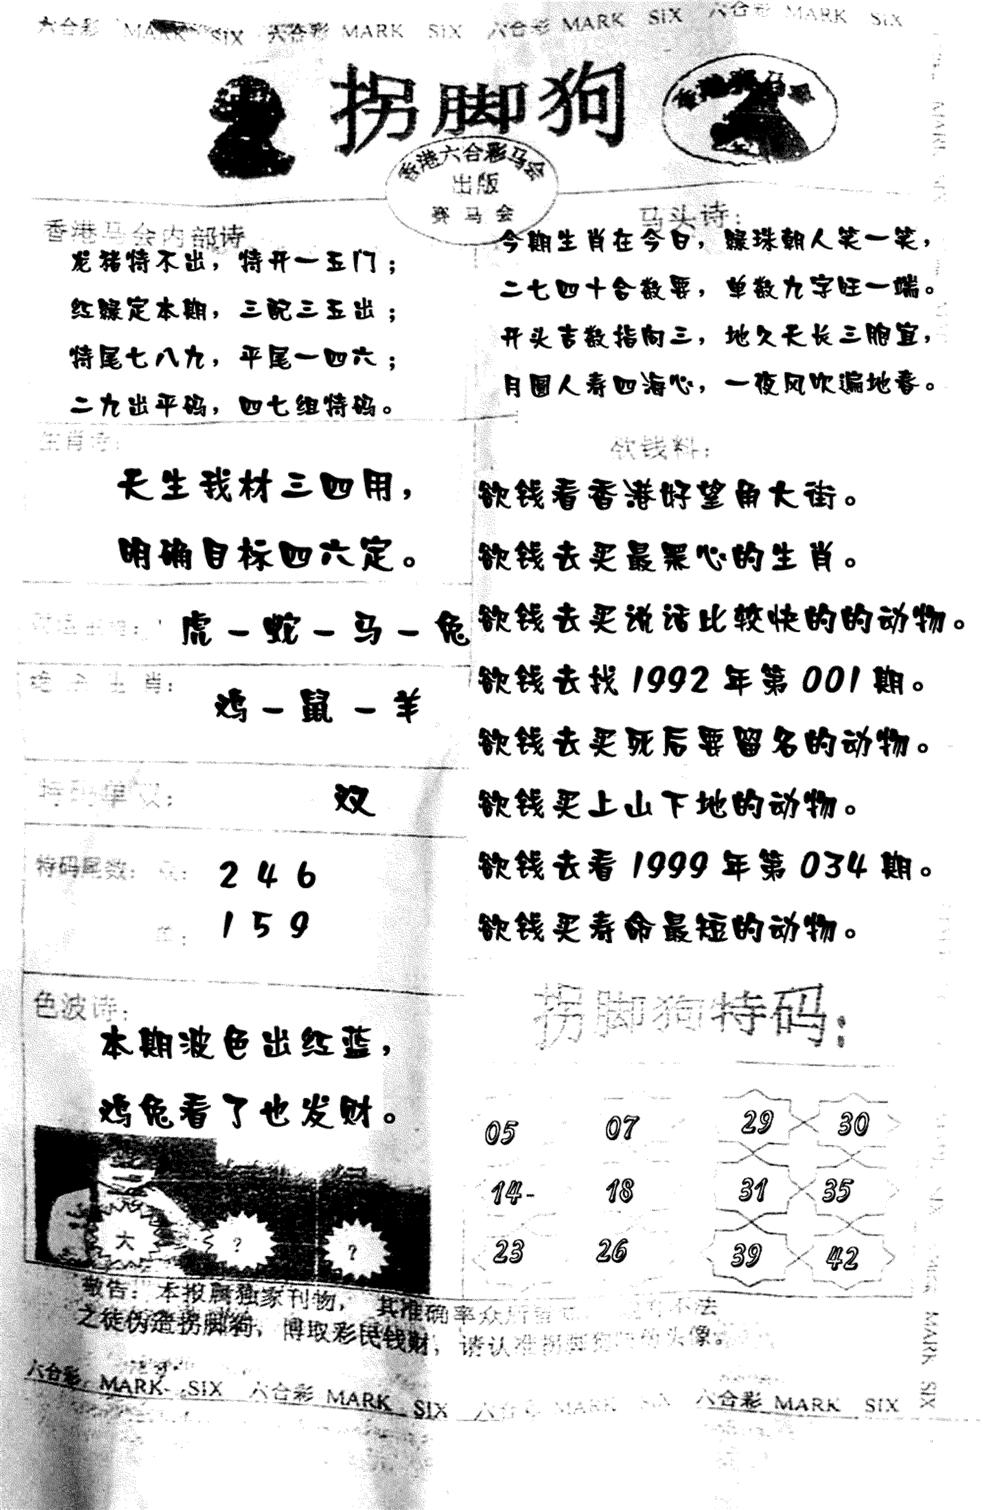 六合彩 MARK SIX 六合彩 MARK SIX 六合彩 MARK SIX 六合彩 MARK SIX
拐脚狗
香港赛马会
香港六合彩马会
出版
赛马会
香港马会内部诗
龙猪特不出，特开一五门；
红绿定本期，三配三五出；
特尾七八九，平尾一四六；
二九出平码，四七组特码。
马头诗：
今期生肖在今日，绿珠朝人笑一笑，
二七四十合数要，单数九字旺一端。
开头吉数指向三，地久天长三胞宜，
月圆人寿四海心，一夜风吹遍地春。
生肖诗：
天生我材三四用，
明确目标四六定。
虎－蛇－马－兔
绝杀生肖：
鸡－鼠－羊
特码单双：
双
特码尾数：双：
2 4 6
单：
1 5 9
色波诗：
本期波色出红蓝，
鸡兔看了也发财。
大 ？ ？
欲钱料：
欲钱看香港好望角大街。
欲钱去买最黑心的生肖。
欲钱去买说话比较快的的动物。
欲钱去找1992年第001期。
欲钱去买死后要留名的动物。
欲钱买上山下地的动物。
欲钱去看1999年第034期。
欲钱买寿命最短的动物。
拐脚狗特码：
05 07 29 30
14- 18 31 35
23 26 39 42
敬告：本报属独家刊物，其准确率众所皆 不法
之徒伪造拐脚狗，博取彩民钱财，请认准拐脚狗 头像。
六合彩 MARK SIX 六合彩 MARK SIX 六合彩 MARK SIX 六合彩 MARK SIX
MARK SIX